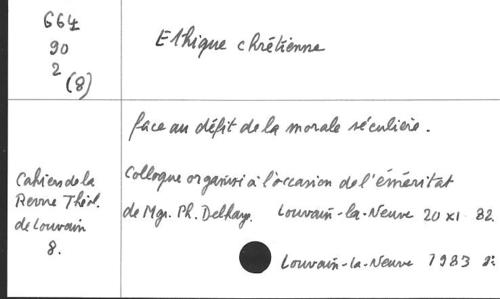 664
90
2
(8)
Ethique chrétienne
face au défit de la morale séculière.
Colloque organisé à l'occasion de l'éméritat
de Mgr. Ph. Delhaye. Louvain-la-Neuve 20 XI 82.
Louvain-la-Neuve 1983 8°
Cahiers de la
Revue Théol.
de Louvain
8.